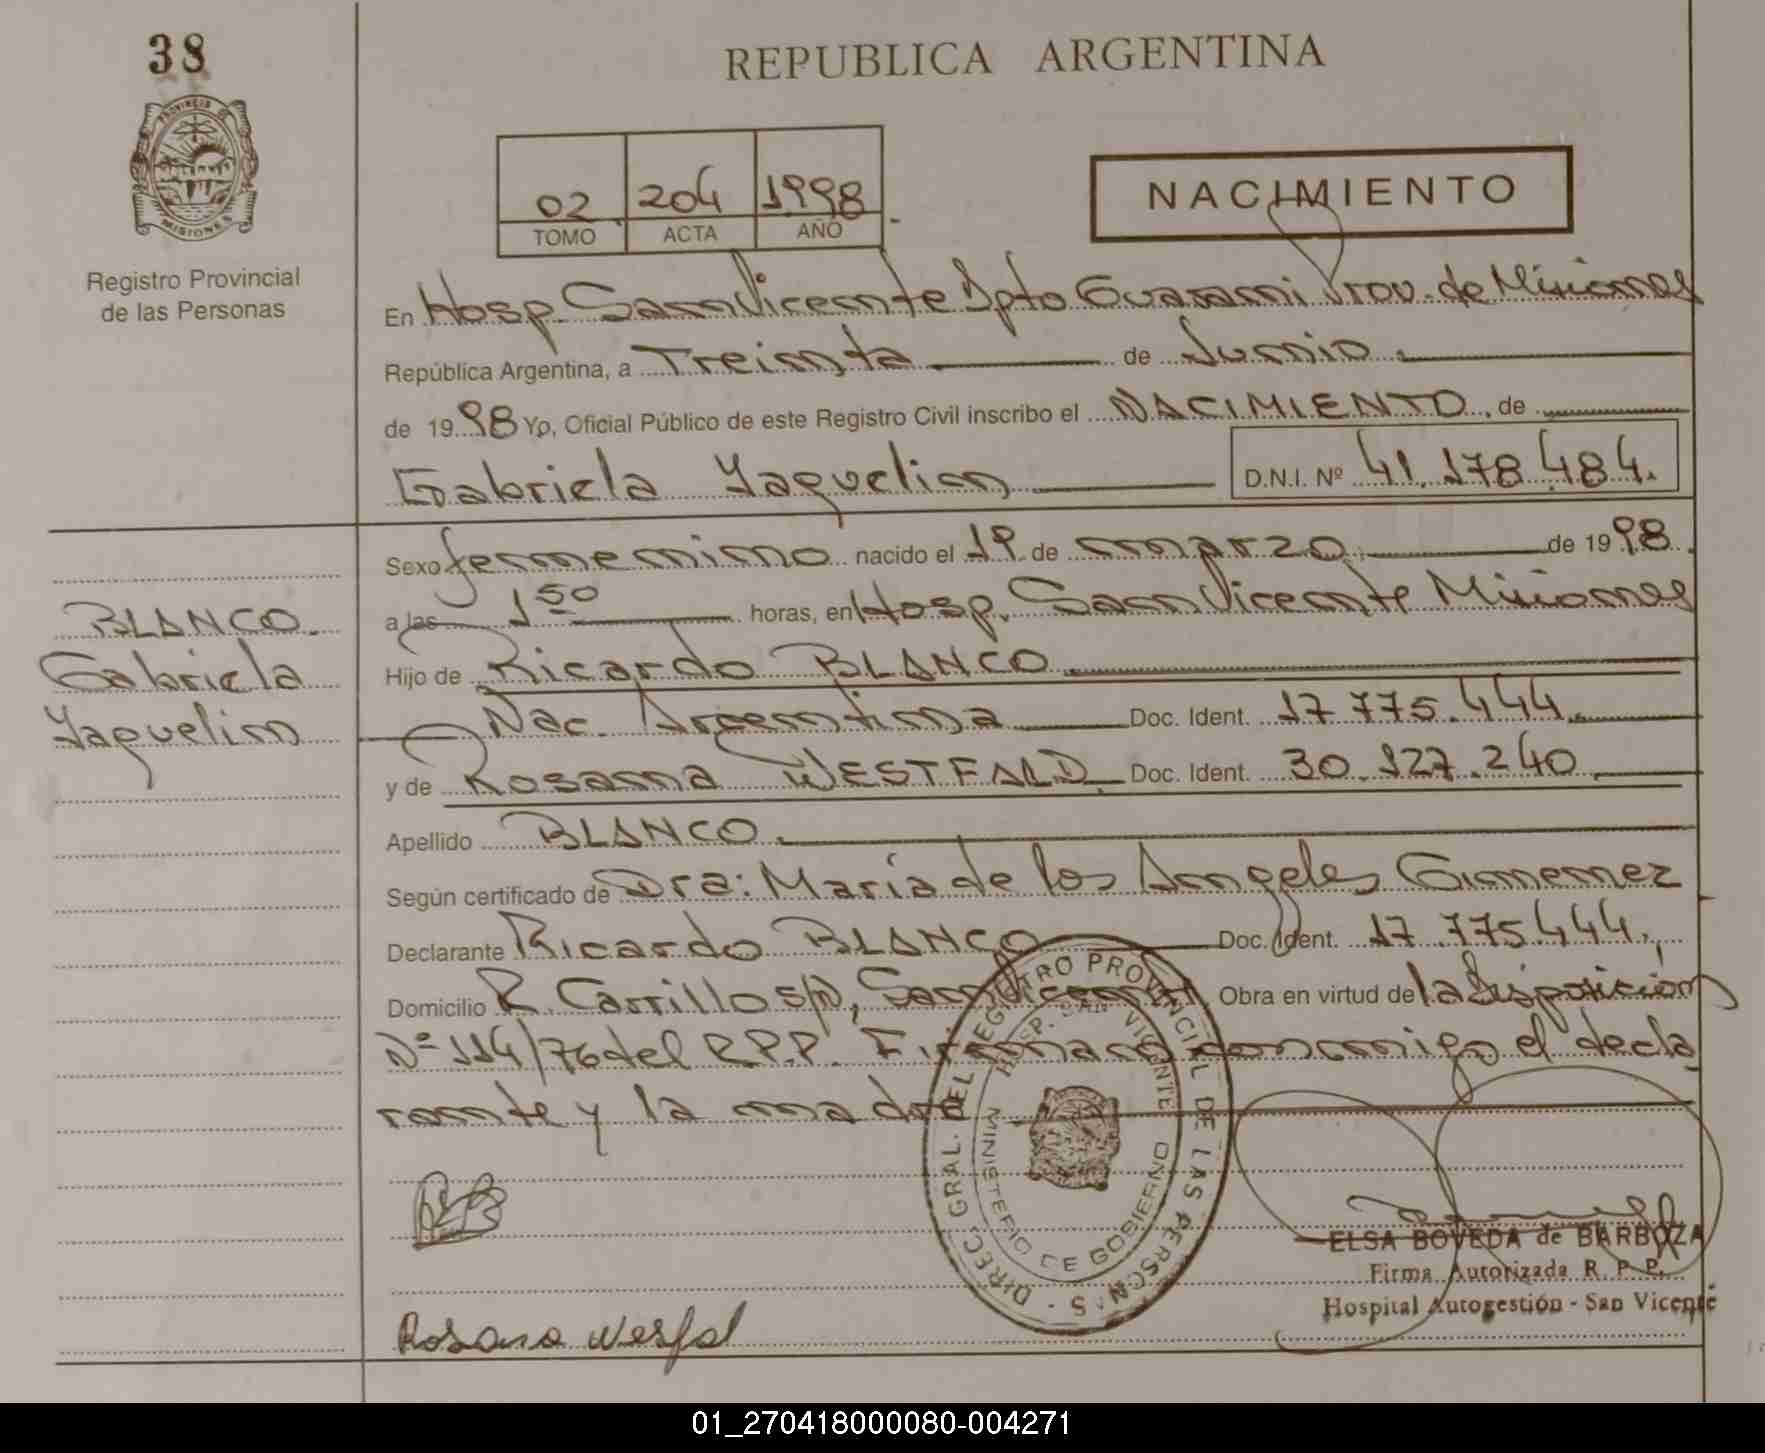 38
REPUBLICA ARGENTINA
PROVINCIA
MISIONES
02 204 1998
TOMO ACTA AÑO
NACIMIENTO
Registro Provincial
de las Personas
En Hosp. San Vicente Dpto Guarani Prov. de Misiones
República Argentina, a Treinta de Junio
de 1998 Yo, Oficial Público de este Registro Civil inscribo el NACIMIENTO de
Gabriela Yaquelin D.N.I. Nº 41.178.484.
Sexo femenino nacido el 19 de marzo de 1998
BLANCO.
Gabriela
Yaquelin
a las 1 50 horas, en Hosp. San Vicente Misiones
Hijo de Ricardo BLANCO
Nac. Argentina Doc. Ident. 17 775.444.
y de Rosana WESTFALD Doc. Ident. 30.127.240
Apellido BLANCO.
Según certificado de Dra: Maria de los Angeles Gimenez
Declarante Ricardo BLANCO Doc. Ident. 17 775.444.
Domicilio R. Carrillo s/n, San Vicente Obra en virtud de la Disposición
Nº 114/76 del R.P.P. Firmando conmigo el decla
rante y la madre
DIREC. GRAL. DEL REGISTRO PROVINCIAL DE LAS PERSONAS
HOSP. SAN VICENTE
MINISTERIO DE GOBIERNO
ELSA BOVEDA de BARBOZA
Firma Autorizada R. P. P.
Hospital Autogestión - San Vicente
Rosana Wesfal
01_270418000080-004271